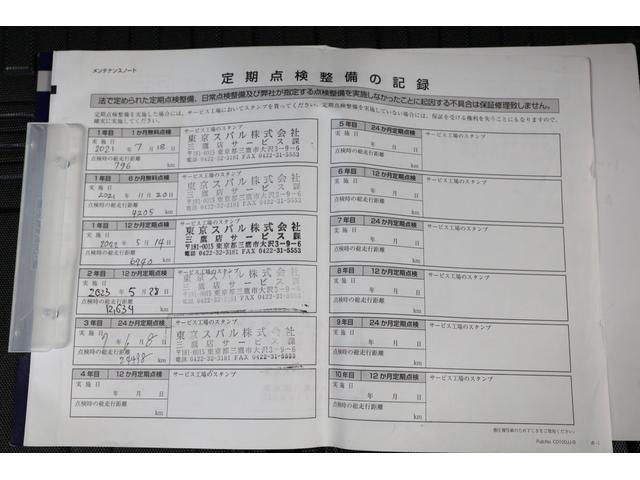 メンテナンスノート
定期点検整備の記録
法で定められた定期点検整備、日常点検整備及び弊社が指定する点検整備を実施しなかったことに起因する不具合は保証修理致しません。
定期点検整備を実施した場合には、サービス工場においてスタンプを貰ってください。定期点検整備を実施していない場合には、保証を受ける権利を失うことにもなりますので、
確実に実施してください。
1年目 1か月無料点検 サービス工場のスタンプ
実施日 2021年 7月 18日
点検時の総走行距離
796 km
東京スバル株式会社
三鷹店サービス課
〒181-0015 東京都三鷹市大沢3-9-6
電話 0422-32-3181 FAX 0422-31-5553
1年目 6か月無料点検 サービス工場のスタンプ
実施日 2021年 11月 20日
点検時の総走行距離
4205 km
東京スバル株式会社
三鷹店サービス課
〒181-0015 東京都三鷹市大沢3-9-6
電話 0422-32-3181 FAX 0422-31-5553
1年目 12か月定期点検 サービス工場のスタンプ
実施日 2022年 5月 14日
点検時の総走行距離
km
東京スバル株式会社
三鷹店サービス課
〒181-0015 東京都三鷹市大沢3-9-6
電話 0422-32-3181 FAX 0422-31-5553
2年目 12か月定期点検
実施日 2023年 5月 28日
点検時の総走行距離
12,634 km
東京スバル株式会社
三鷹店サービス課
〒181-0015 東京都三鷹市大沢3-9-6
電話 0422-32-3181 FAX 0422-31-5553
3年目 24か月定期点検 サービス工場のスタンプ
実施日 年 月 日
点検時の総走行距離
km
東京スバル株式会社
三鷹店サービス課
〒181-0015 東京都三鷹市大沢3-9-6
電話 0422-32-3181 FAX 0422-31-5553
4年目 12か月定期点検 サービス工場のスタンプ
実施日 年 月 日
点検時の総走行距離
km
5年目 24か月定期点検 サービス工場のスタンプ
実施日 年 月 日
点検時の総走行距離
km
6年目 12か月定期点検 サービス工場のスタンプ
実施日 年 月 日
点検時の総走行距離
km
7年目 24か月定期点検 サービス工場のスタンプ
実施日 年 月 日
点検時の総走行距離
km
8年目 12か月定期点検 サービス工場のスタンプ
実施日 年 月 日
点検時の総走行距離
km
9年目 24か月定期点検 サービス工場のスタンプ
実施日 年 月 日
点検時の総走行距離
km
10年目 12か月定期点検 サービス工場のスタンプ
実施日 年 月 日
点検時の総走行距離
km